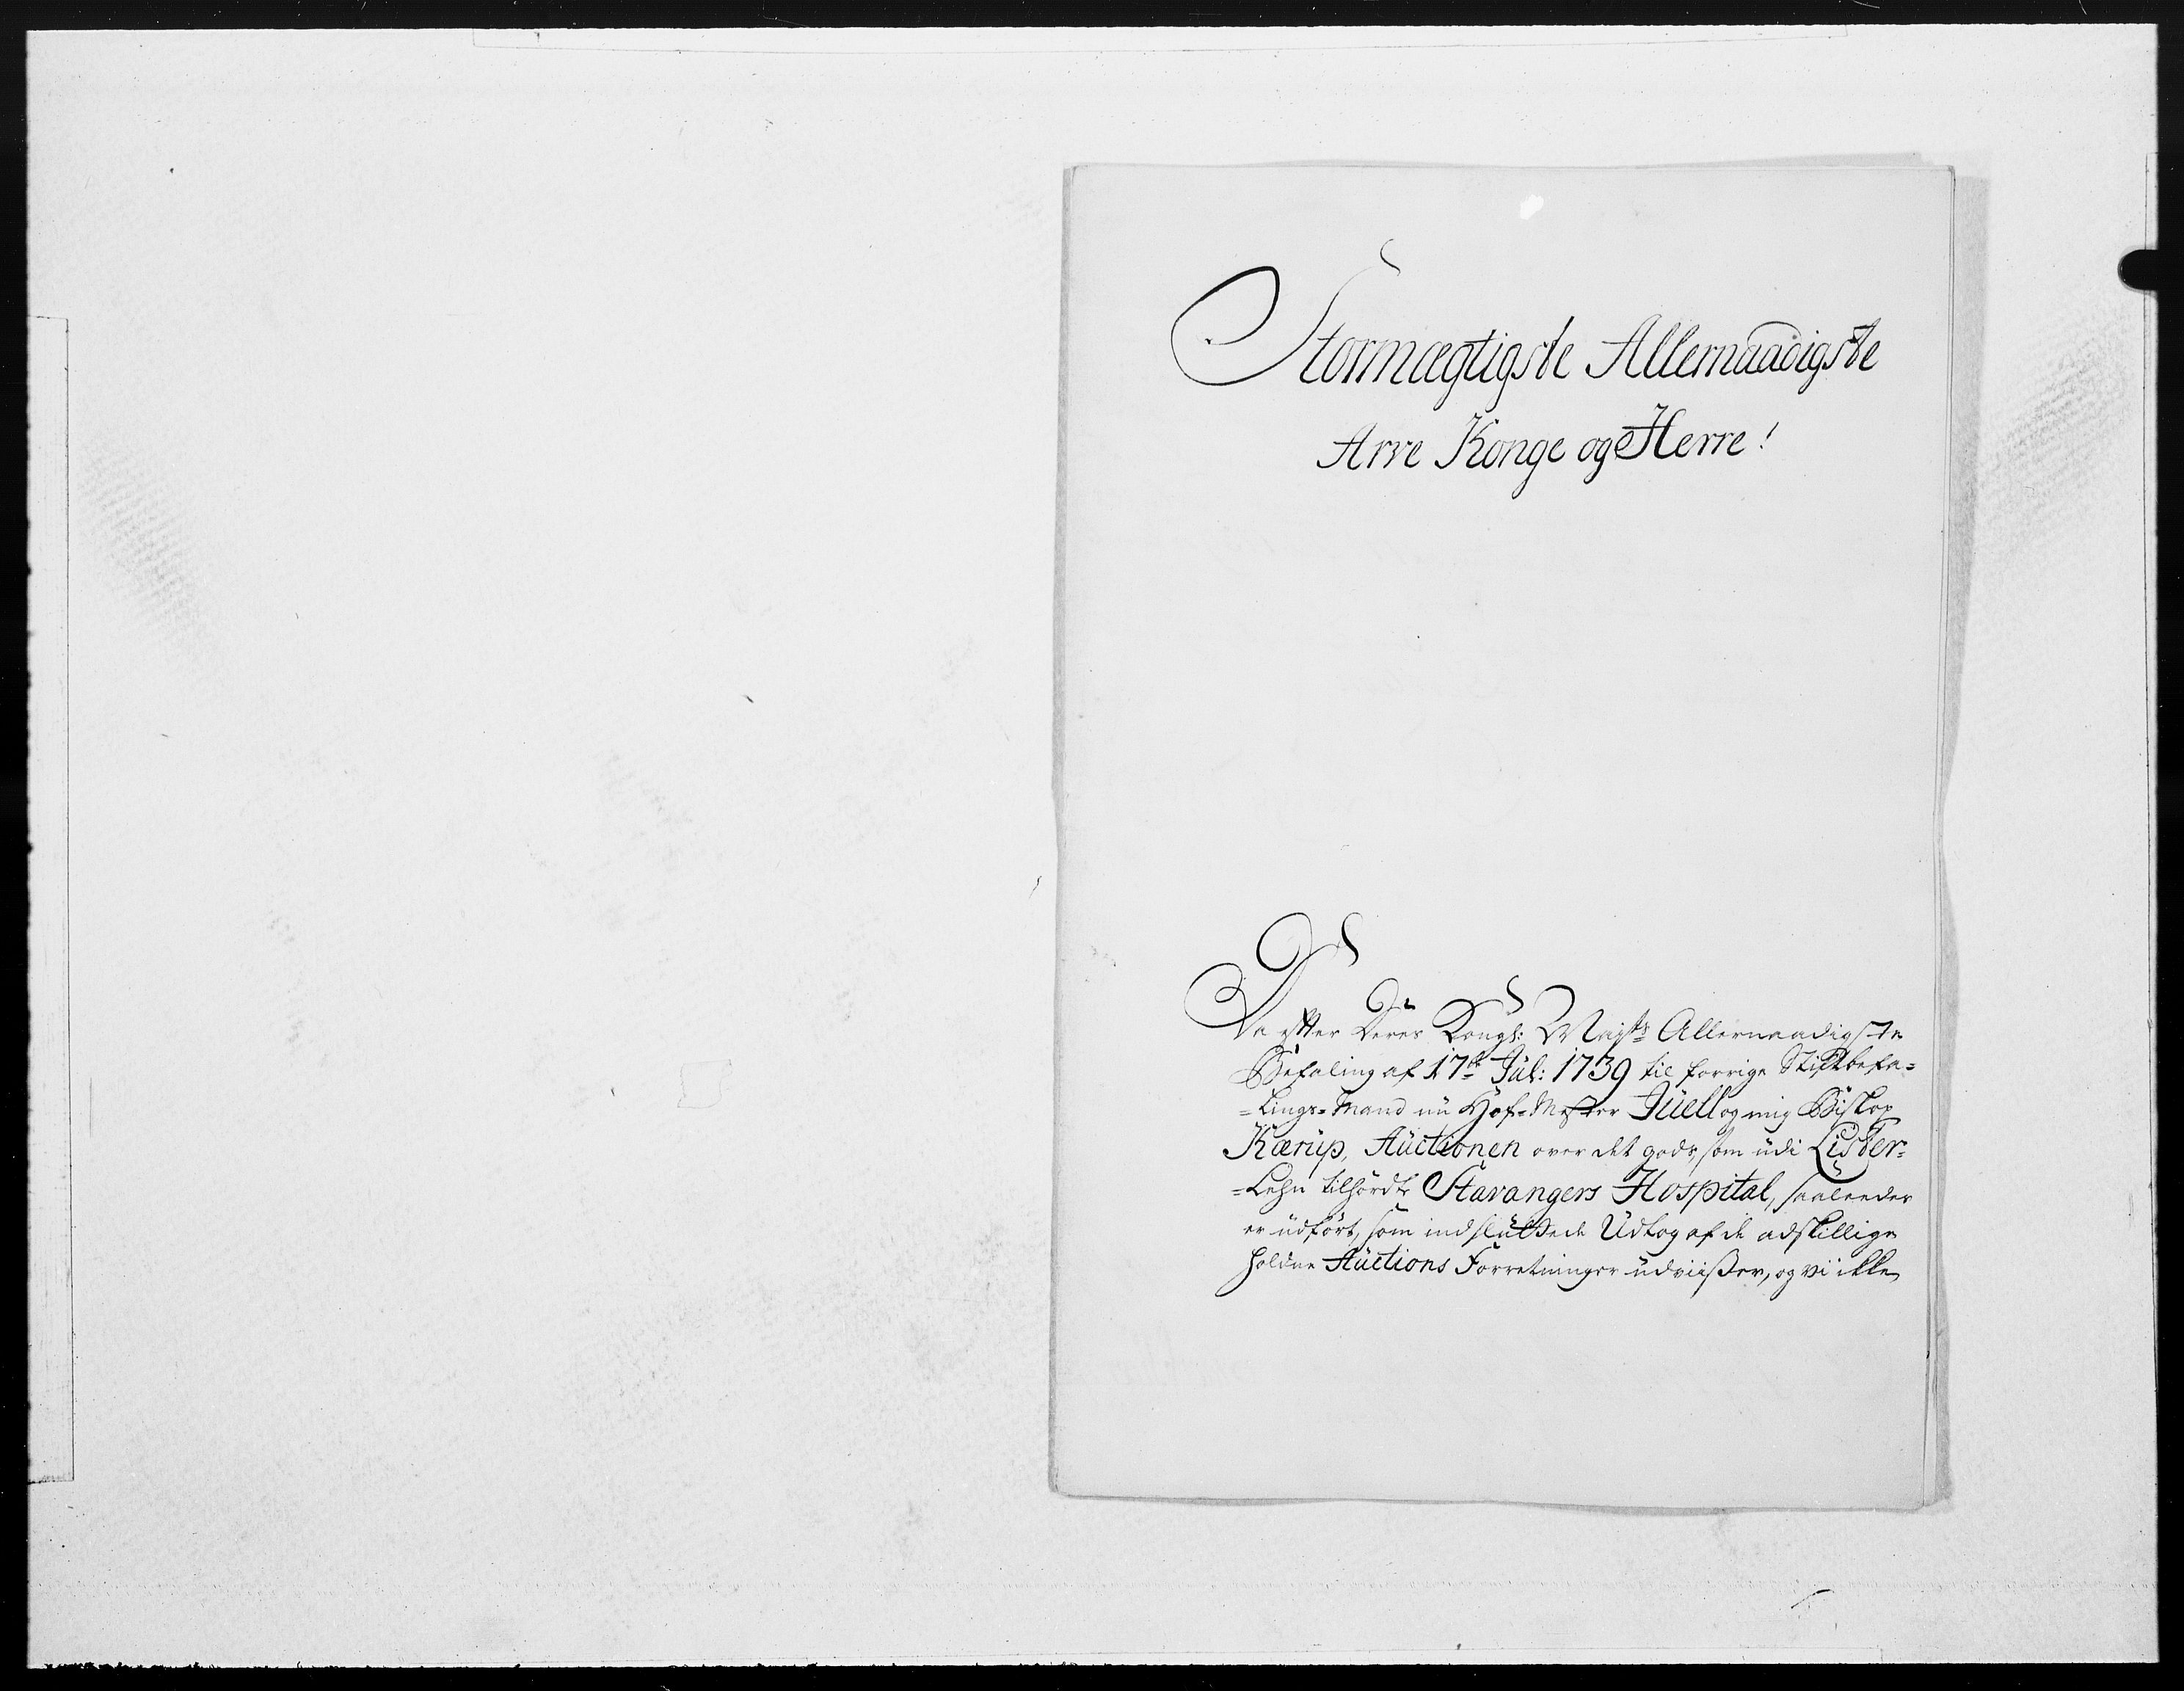 Stormægtigste Allernaadigste
Arve Konge og Herre!
Da efter Deres Kongl: Majts Allernaadigste
Befaling af 17de Jul: 1739 til forrige Stiftbefa=
=lings-Mand nu Hof-Mester Jüell og mig Biskop
Kærüp, Auctionen over det gods, som üdi Lister=
=Lehn tilhördte Stavangers Hospital, saaleedes
er üdført, som indslüttede Udtog af de adskillige
holdne Auctions Forretninger üdviißer, og vi ikke